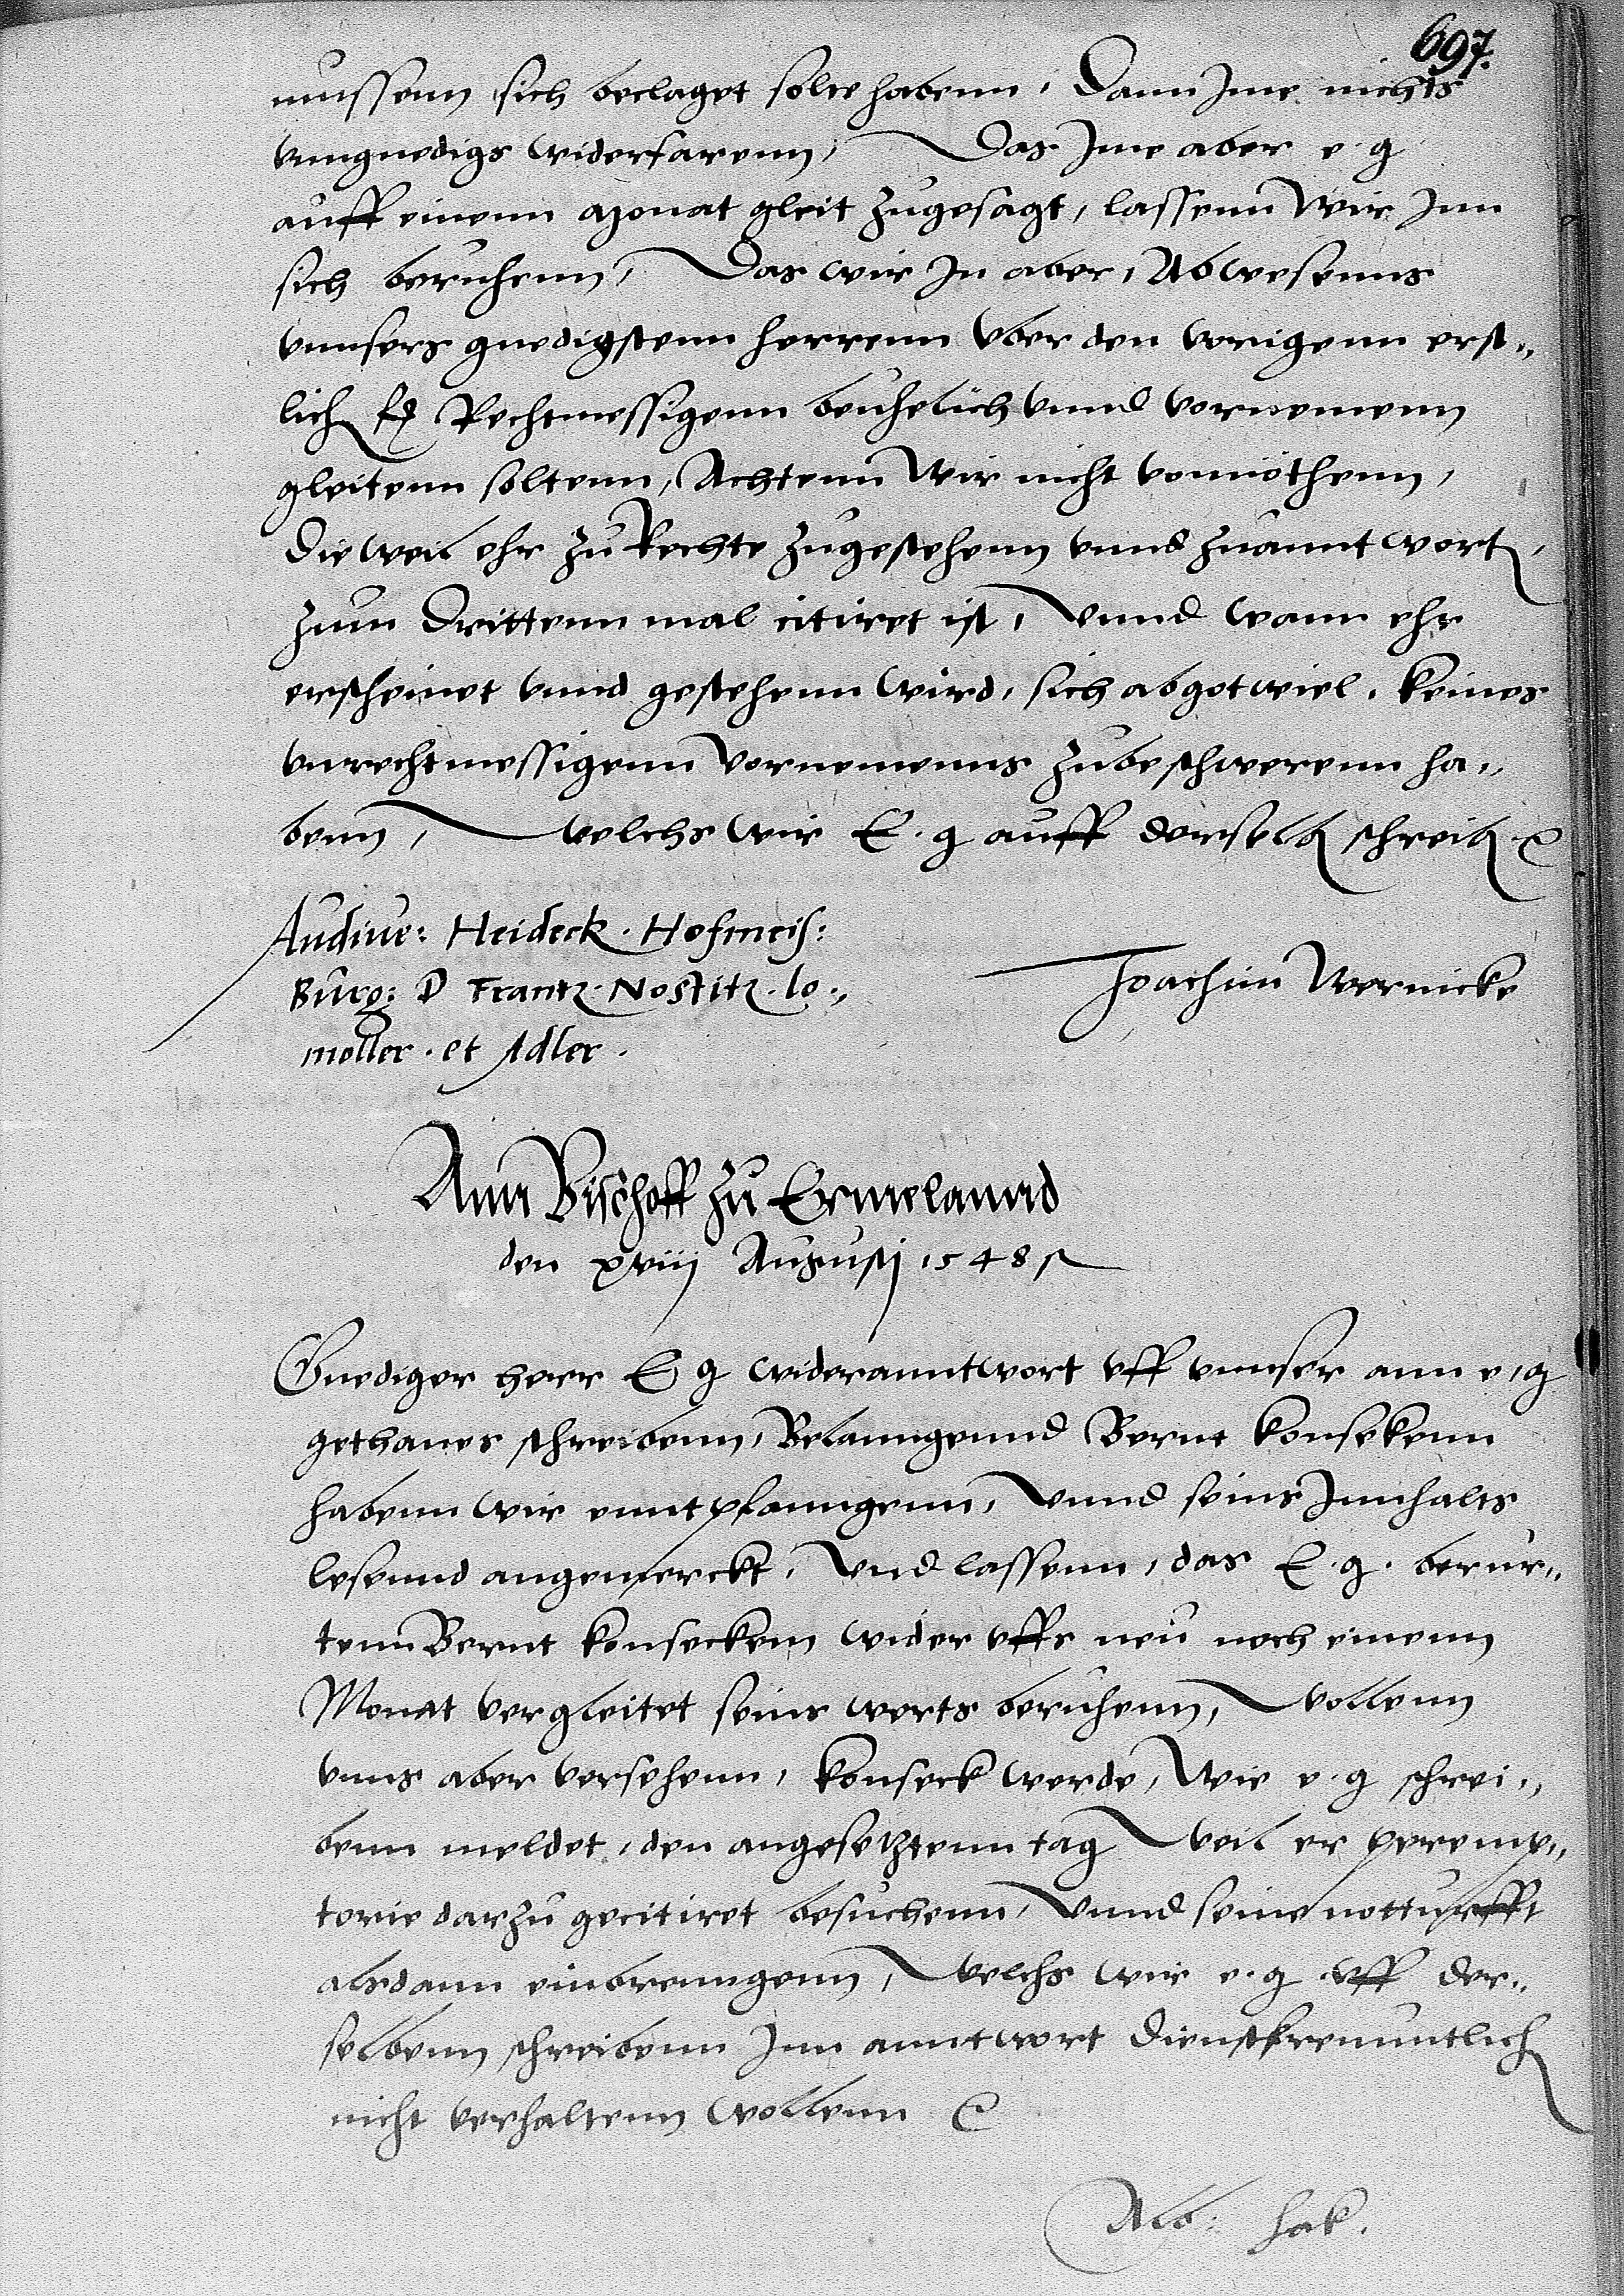 697.
mussenn sich beclaget solte habenn, Dann Ime nichts
vnngnedigs widerfarenn, Das Ime aber e. g
auff einenn Monat gleit zugesagt, lassenn wir Inn
sich beruhenn, Das wir In aber, Abwesenns
vnnsers gnedigstenn herrenn vber den vorigenn erst„
lich Rechtmessigenn beuhelich vnnd vornemenn
gleitenn soltenn, Achtenn wir nicht vonnöthenn,
die weil ehr zu Rechte zugestehenn vnnd zuanntwort
zum drittenn mal citiret ist, Vnnd wann ehr
erscheinet vnnd gestehenn wird, sich abgotwiel, keines
vnrechtmessigenn vornemenns zubeschwerenn ha„
benn, welchs wir E. g auff derselb schreib
Audiue: Heideck. Hofmeis:
Burg: D Frantz. Nostitz. lo„
moller. et Adler.
Joachim Wernicke
Ann Bischoff zu Ermelannd
den xviij Augusti 1548
Gnediger herr E g wideranntwort vff vnnser ann e, g
gethanes schreibenn, Belanngennd Bernt konsekenn
habenn wir enntpfanngenn, Vnnd seins Innhalts
lesennd angemerckt, Vnd lassenn, das E. g. berur„
tenn Bernt konseckenn wider vffs neu noch einenn
Monat vergleitet seins werts beruhenn, Wollenn
vnns aber versehenn, konseck werde, wie e. g schrei„
benn meldet, den angesetztenn tag Weil er peremp„
torie darzu gecitiret besuchenn, Vnnd seine notturfft
alsdann einbrenngenn, Welchs wir e. g vff der„
selbenn schreibenn Inn anntwort dienstfreuntlich
nicht verhaltenn wollenn
Alb: hak.